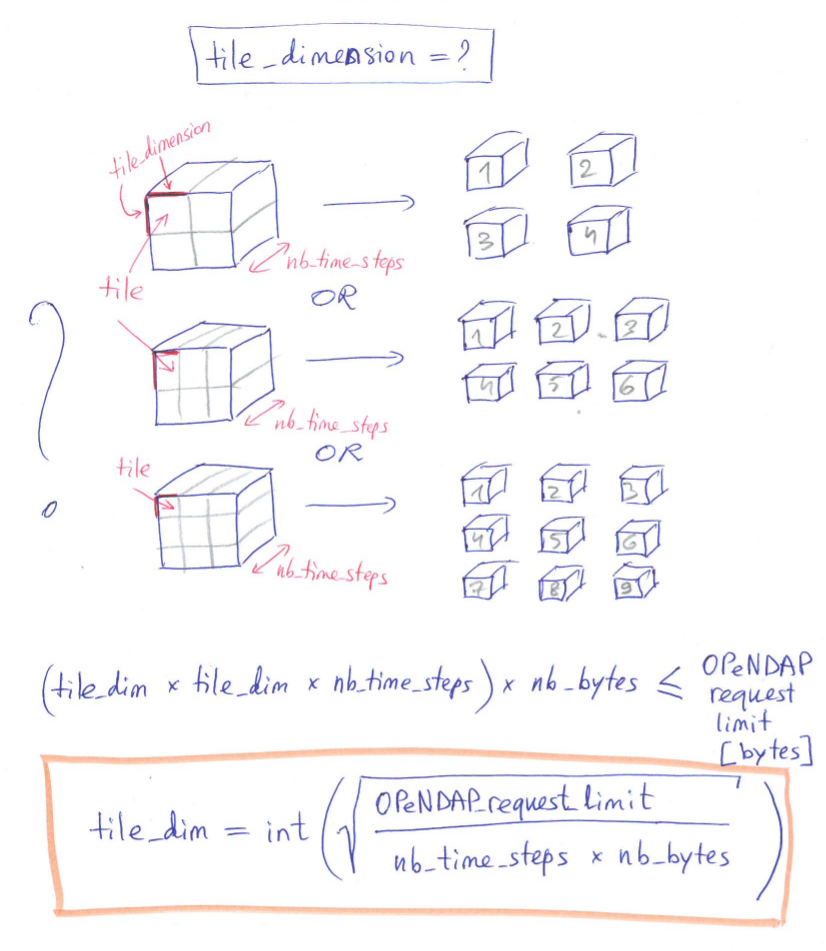 tile_dimension = ?
tile_dimension
1 2
3 4
nb_time_steps
tile
OR
1 2 3
4 5 6
nb_time_steps
OR
tile
1 2 3
4 5 6
7 8 9
nb_time_steps
?
(tile_dim × tile_dim × nb_time_steps) × nb_bytes ≤ OPeNDAP
request
limit
[bytes]
tile_dim = int (√ OPeNDAP_request_limit
nb_time_steps × nb_bytes )